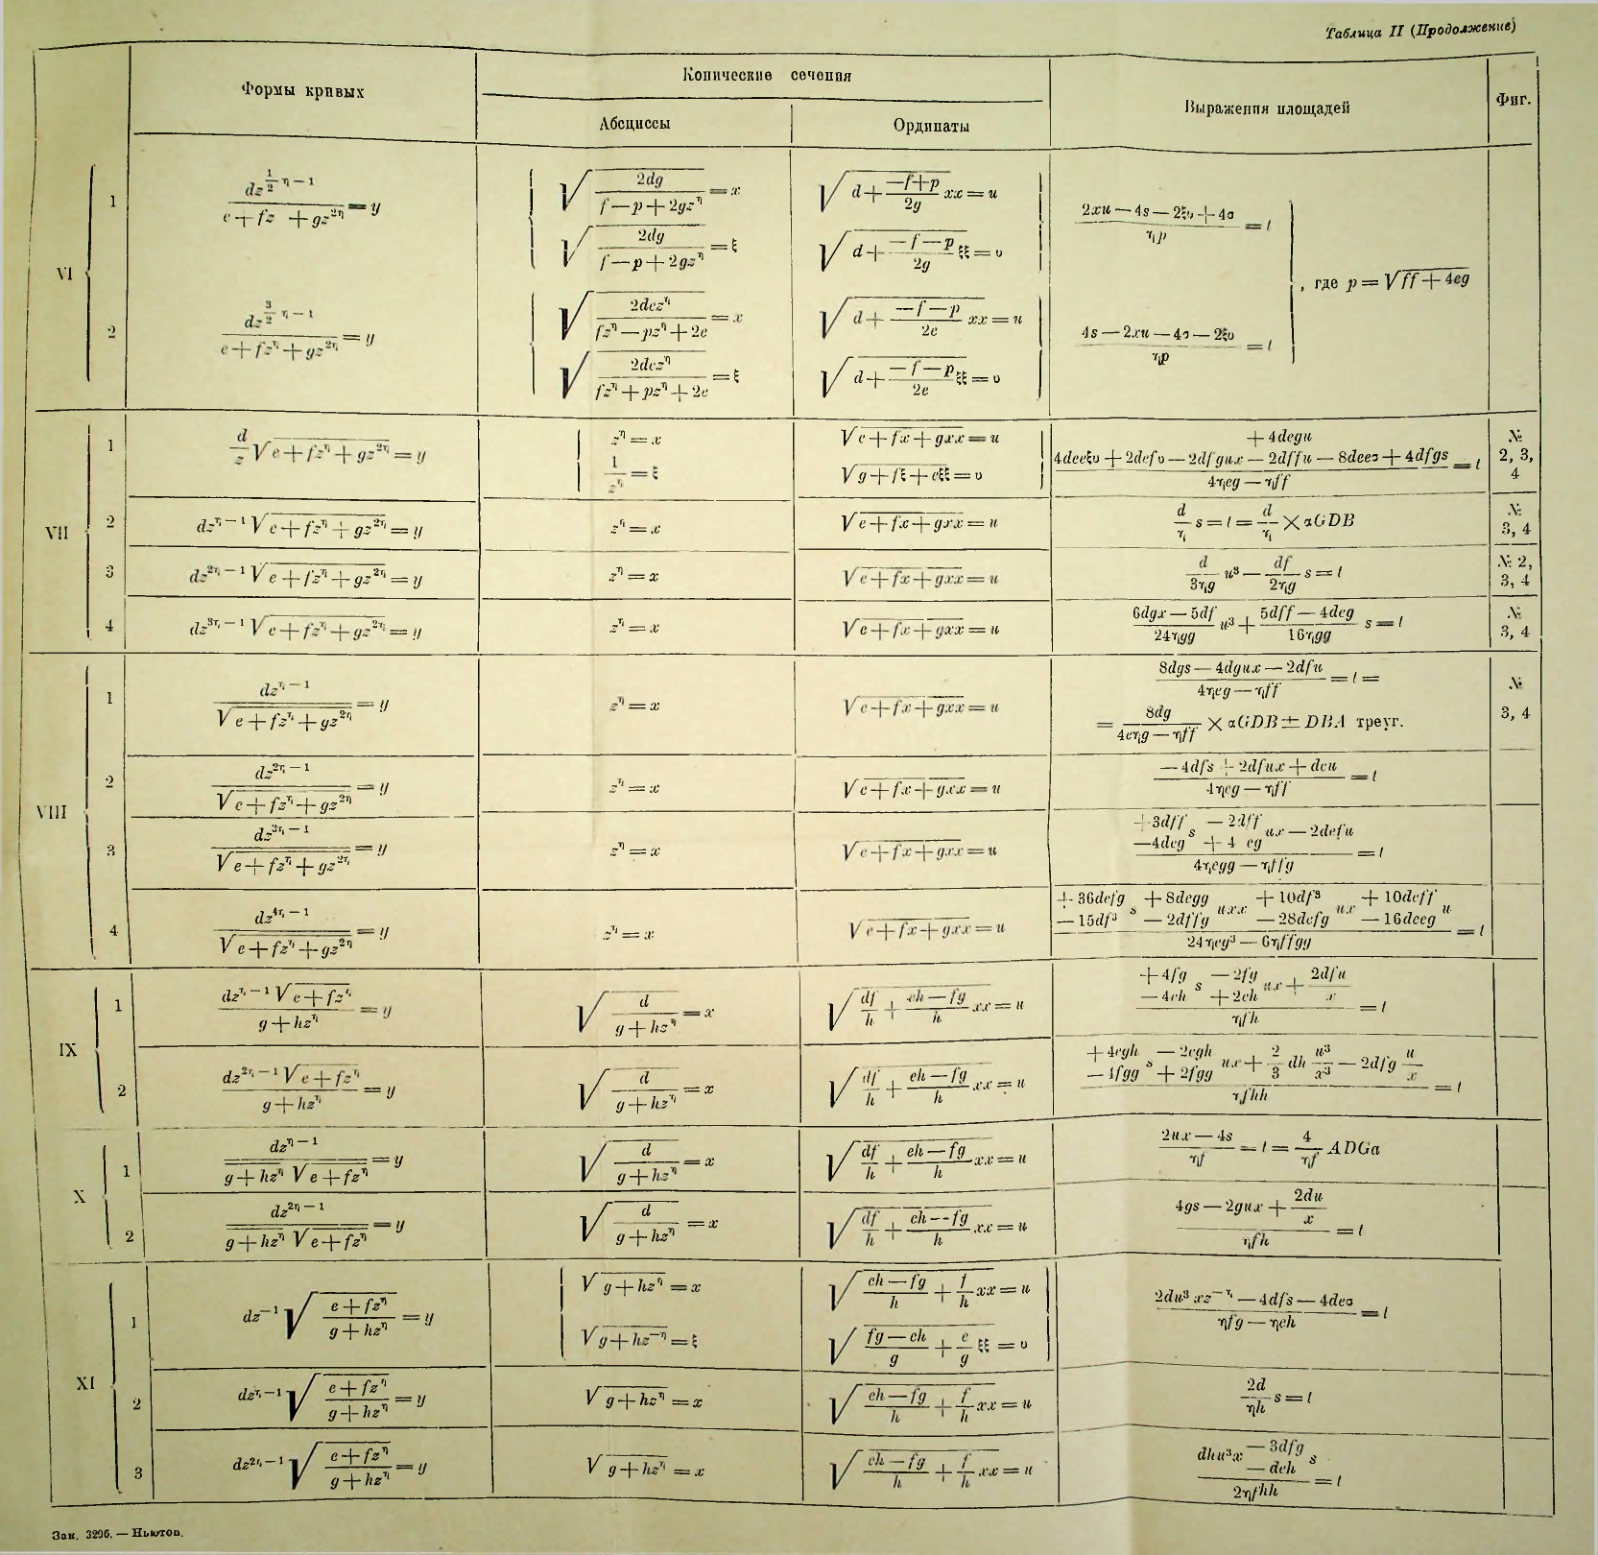 Таблица II (Продолжение)
Формы кривых
Конические сечения
Абсциссы
Ординаты
Выражения площадей
Фиг.
VI
1
dz^{\frac{1}{2}η−1} / (e + fz + gz^{2η}) = y
√(2dg / (f − p + 2gz^η)) = x
√(d + (−f+p)/2g xx) = u
√(2dg / (f − p + 2gz^η)) = ξ
√(d + (−f−p)/2g ξξ) = υ
(2xu − 4s − 2ξυ + 4σ) / ηp = l
2
dz^{\frac{3}{2}η−1} / (e + fz^η + gz^{2η}) = y
√(2dez^η / (fz^η − pz^η + 2e)) = x
√(d + (−f−p)/2e xx) = u
√(2dez^η / (fz^η + pz^η + 2e)) = ξ
√(d + (−f−p)/2e ξξ) = υ
(4s − 2xu − 4σ − 2ξυ) / ηp = l
, где p = √(ff + 4eg)
VII
1
d/z √(e + fz^η + gz^{2η}) = y
z^η = x
1/z^η = ξ
√(e + fx + gxx) = u
√(g + fξ + eξξ) = υ
+ 4degu
4deeξυ + 2defυ − 2dfgux − 2dffu − 8deeσ + 4dfgs / (4ηeg − ηff) = l
№ 2, 3, 4
2
dz^{η−1} √(e + fz^η + gz^{2η}) = y
z^η = x
√(e + fx + gxx) = u
d/η s = l = d/η × αGDB
№ 3, 4
3
dz^{2η−1} √(e + fz^η + gz^{2η}) = y
z^η = x
√(e + fx + gxx) = u
d/3ηg u³ − df/2ηg s = l
№ 2, 3, 4
4
dz^{3η−1} √(e + fz^η + gz^{2η}) = y
z^η = x
√(e + fx + gxx) = u
(6dgx − 5df)/24ηgg u³ + (5dff − 4deg)/16ηgg s = l
№ 3, 4
VIII
1
dz^{η−1} / √(e + fz^η + gz^{2η}) = y
z^η = x
√(e + fx + gxx) = u
(8dgs − 4dgux − 2dfu) / (4ηeg − ηff) = l =
= 8dg / (4eηg − ηff) × αGDB ± DBA треуг.
№ 3, 4
2
dz^{2η−1} / √(e + fz^η + gz^{2η}) = y
z^η = x
√(e + fx + gxx) = u
(−4dfs + 2dfux + deu) / (4ηeg − ηff) = l
3
dz^{3η−1} / √(e + fz^η + gz^{2η}) = y
z^η = x
√(e + fx + gxx) = u
+3dff s − 2dff ux − 2defu
−4deg + 4 eg
/ (4ηegg − ηffg) = l
4
dz^{4η−1} / √(e + fz^η + gz^{2η}) = y
z^η = x
√(e + fx + gxx) = u
+ 36defg s + 8degg uxx + 10df³ ux + 10deff u
− 15df³ − 2dffg − 28defg − 16deeg
/ (24ηeg³ − 6ηffgg) = l
IX
1
dz^{η−1} √(e + fz^η) / (g + hz^η) = y
√(d / (g + hz^η)) = x
√(df/h + (eh − fg)/h xx) = u
+ 4fg s − 2fg ux + 2dfu/x
− 4eh + 2eh
/ ηfh = l
2
dz^{2η−1} √(e + fz^η) / (g + hz^η) = y
√(d / (g + hz^η)) = x
√(df/h + (eh − fg)/h xx) = u
+ 4egh s − 2egh ux + 2/3 dh u³/x³ − 2dfg u/x
− 4fgg + 2fgg
/ ηfhh = l
X
1
dz^{η−1} / (g + hz^η √(e + fz^η)) = y
√(d / (g + hz^η)) = x
√(df/h + (eh − fg)/h xx) = u
(2ux − 4s)/ηf = l = 4/ηf ADGa
2
dz^{2η−1} / (g + hz^η √(e + fz^η)) = y
√(d / (g + hz^η)) = x
√(df/h + (eh − fg)/h xx) = u
(4gs − 2gux + 2du/x) / ηfh = l
XI
1
dz^{−1} √((e + fz^η) / (g + hz^η)) = y
√(g + hz^η) = x
√(g + hz^{−η}) = ξ
√((eh − fg)/h + f/h xx) = u
√((fg − eh)/g + e/g ξξ) = υ
(2du³xz^{−η} − 4dfs − 4deσ) / (ηfg − ηeh) = l
2
dz^{η−1} √((e + fz^η) / (g + hz^η)) = y
√(g + hz^η) = x
√((eh − fg)/h + f/h xx) = u
2d/ηh s = l
3
dz^{2η−1} √((e + fz^η) / (g + hz^η)) = y
√(g + hz^η) = x
√((eh − fg)/h + f/h xx) = u
dhu³x − 3dfg s
− deh
/ 2ηfhh = l
Зак. 3296. — Ньютон.